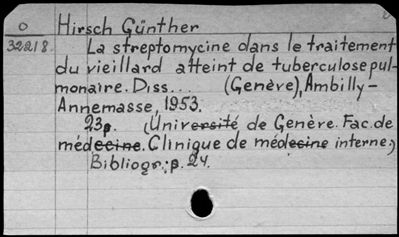 O
32218
Hirsch Günther
La streptomycine dans le traitement
du vieillard atteint de tuberculose pul-
monaire. Diss... (Genève), Ambilly-
Annemasse, 1953.
23p. (Université de Genève. Fac. de
médecine. Clinique de médecine interne)
Bibliogr.: p. 24.